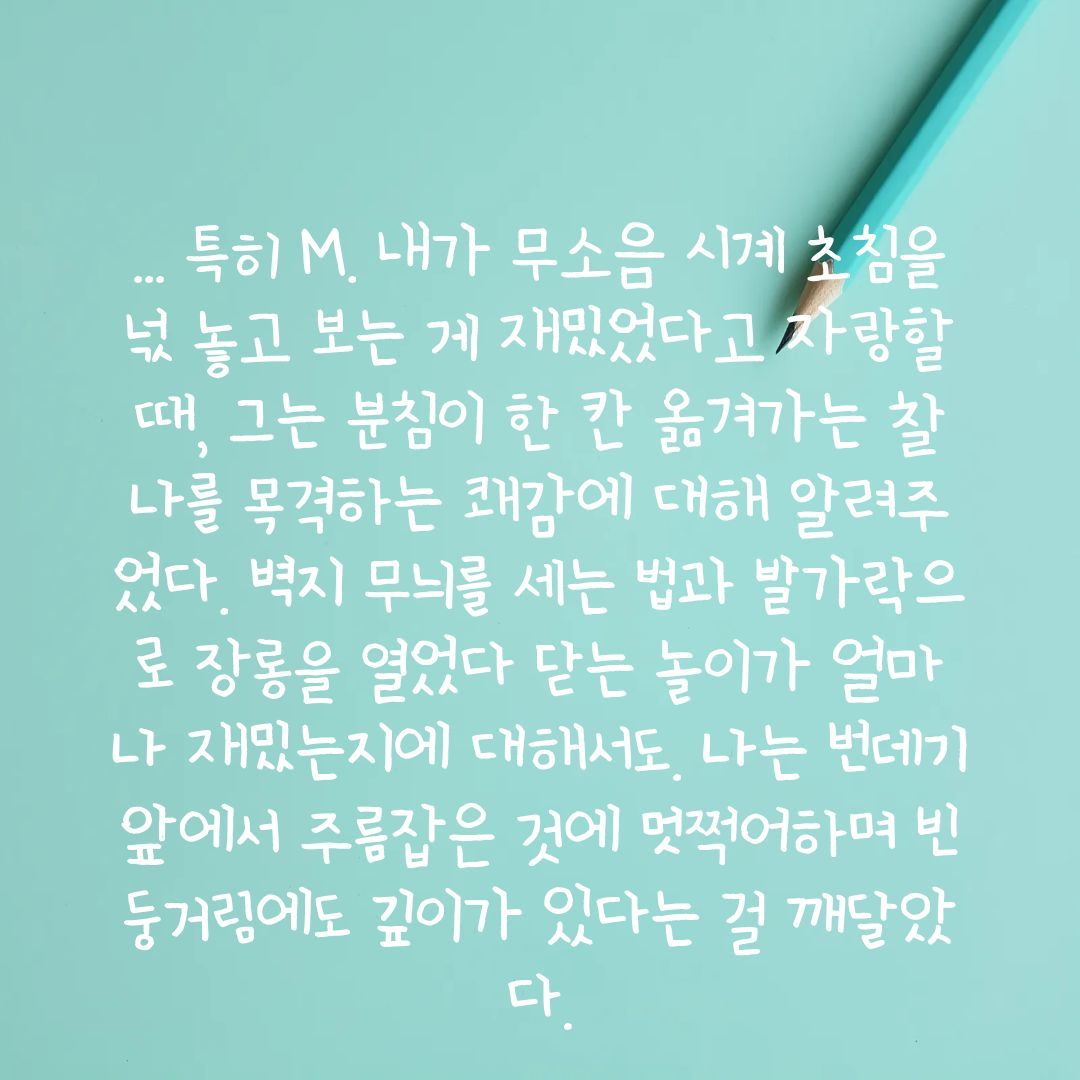 ... 특히 M. 내가 무소음 시계 초침을
넋 놓고 보는 게 재밌었다고 자랑할
때, 그는 분침이 한 칸 옮겨가는 찰
나를 목격하는 쾌감에 대해 알려주
었다. 벽지 무늬를 세는 법과 발가락으
로 장롱을 열었다 닫는 놀이가 얼마
나 재밌는지에 대해서도. 나는 번데기
앞에서 주름잡은 것에 멋쩍어하며 빈
둥거림에도 깊이가 있다는 걸 깨달았
다.